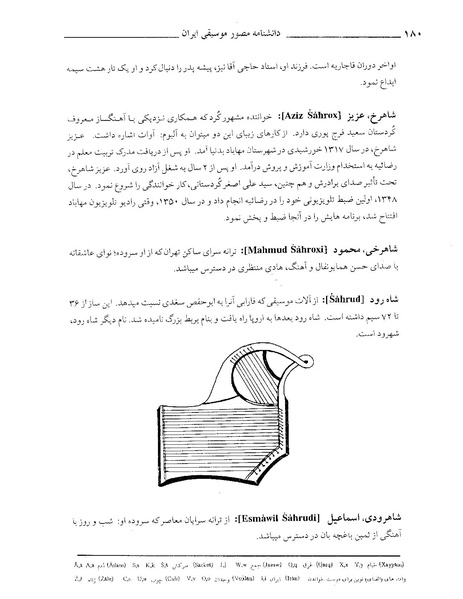 ۱۸۰ دانشنامه مصور موسیقی ایران
اواخر دوران قاجاریه است. فرزند او، استاد حاجی آقا نیز، پیشه پدر را دنبال کرد و او یک تار هشت سیمه
ابداع نمود.
شاهرخ، عزیز [Aziz Šâhrox]: خواننده مشهور کُرد که همکاری نزدیکی با آهنگساز معروف
کُردستان سعید فرج پوری دارد. از کارهای زیبای این دو میتوان به آلبوم: آوات اشاره داشت. عـزیز
شاهرخ، در سال ۱۳۱۷ خورشیدی در شهرستان مهاباد بدنیا آمد. او پس از دریافت مدرک تربیت معلم در
رضائیه به استخدام وزارت آموزش و پروش درآمد. او پس از ۲ سال به شغل آزاد روی آورد. عزیز شاهرخ،
تحت تأثیر صدای برادرش و هم چنین، سید علی اصغر کُردستانی، کار خوانندگی را شروع نمود. در سال
۱۳۴۸، اولین ضبط تلویزیونی خود را در رضائیه انجام داد و در سال ۱۳۵۰، وقتی رادیو تلویزیون مهاباد
افتتاح شد، برنامه هایش را در آنجا ضبط و پخش نمود.
شاهرخی، محمود [Mahmud Šâhroxi]: ترانه سرای ساکن تهران که از او سروده؛ نوای عاشقانه
با صدای حسن همایونفال و آهنگ، هادی منتظری در دسترس میباشد.
شاه رود [Šâhrud]: از آلات موسیقی که فارابی آنرا به ابوحفص سغدی نسبت میدهد. این ساز از ۳۶
تا ۷۲ سیم داشته است. شاه رود بعدها به اروپا راه یافت و بنام بربط بزرگ نامیده شد. نام دیگر شاه رود،
شهرود است.
شاهرودی، اسماعیل [Esmâwil Šâhrudi]: از ترانه سرایان معاصر که سروده او: شب و روز با
آهنگی از ثمین باغچه بان در دسترس میباشد.